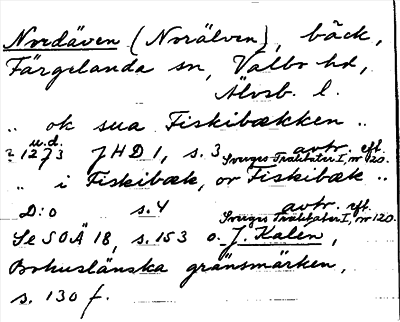 Nordäven (Norälven), bäck,
Färgelanda sn, Valbo hd,
Älvsb. l.
.. ok sua Fiskibækken ..
u.d.
? 1273 JHD 1, s. 3 avtr. eft.
Sveriges Traktater I, nr 120.
.. i Fiskibæk, or Fiskibæk ..
D:o s. 4 avtr. eft.
Sveriges Traktater I, nr 120.
Se SOÄ 18, s. 153 o. J. Kalén,
Bohuslänska gränsmärken,
s. 130 f.